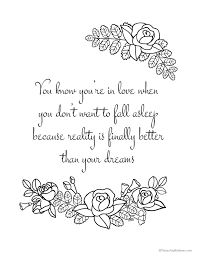 You know you're in love when
you don't want to fall asleep
because reality is finally better
than your dreams